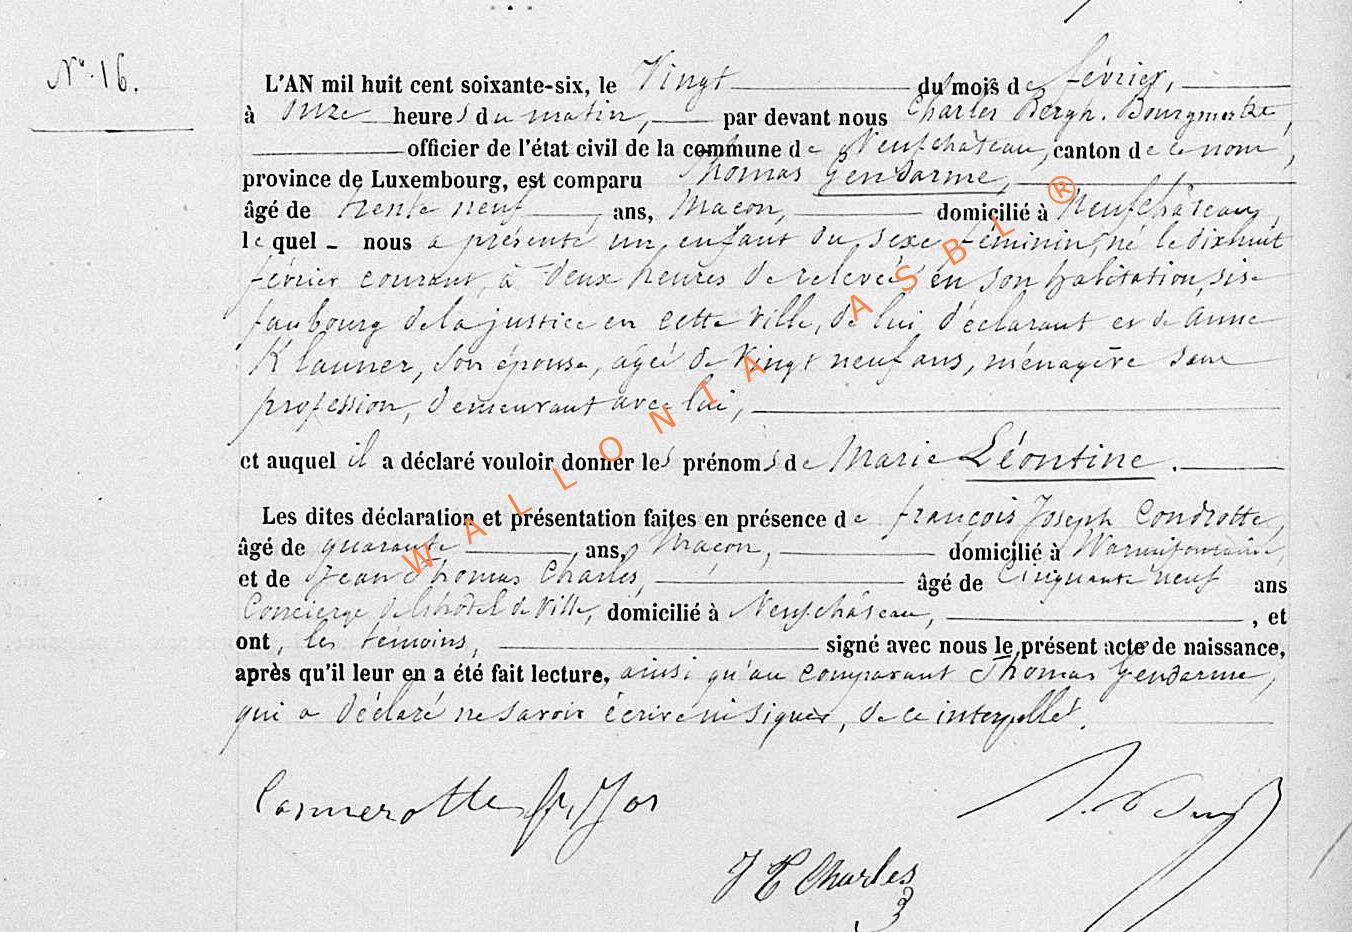 N° 16.
L'AN mil huit cent soixante-six, le Vingt du mois de février,
à onze heures du matin, par devant nous Charles Bergh. Bourgmestre,
officier de l'état civil de la commune de Neufchâteau, canton de ce nom,
province de Luxembourg, est comparu Thomas Gendarme,
âgé de trente neuf ans, Maçon, domicilié à Neufchâteau,
le quel - nous a présenté un enfant du sexe féminin, né le dixhuit
février courant, à deux heures de relevée, en son habitation, sise
faubourg de la justice en cette ville, de lui déclarant et de Anne
Klauner, son épouse, agée de vingt neuf ans, ménagère sans
profession, demeurant avec lui,
et auquel il a déclaré vouloir donner les prénoms de Marie Léontine.
Les dites déclaration et présentation faites en présence de françois Joseph Condrotte,
âgé de quarante ans, Maçon, domicilié à Warmifontaine,
et de Jean Thomas Charles, âgé de Cinquante neuf ans
Concierge de l'hôtel de Ville, domicilié à Neufchâteau, , et
ont, les temoins, signé avec nous le présent acte de naissance,
après qu'il leur en a été fait lecture, ainsi qu'au comparant Thomas Gendarme,
qui a déclaré ne savoir écrire ni signer, de ce interpellé.
fr, Jos
J T Charles
WALLONIA ASBL ®